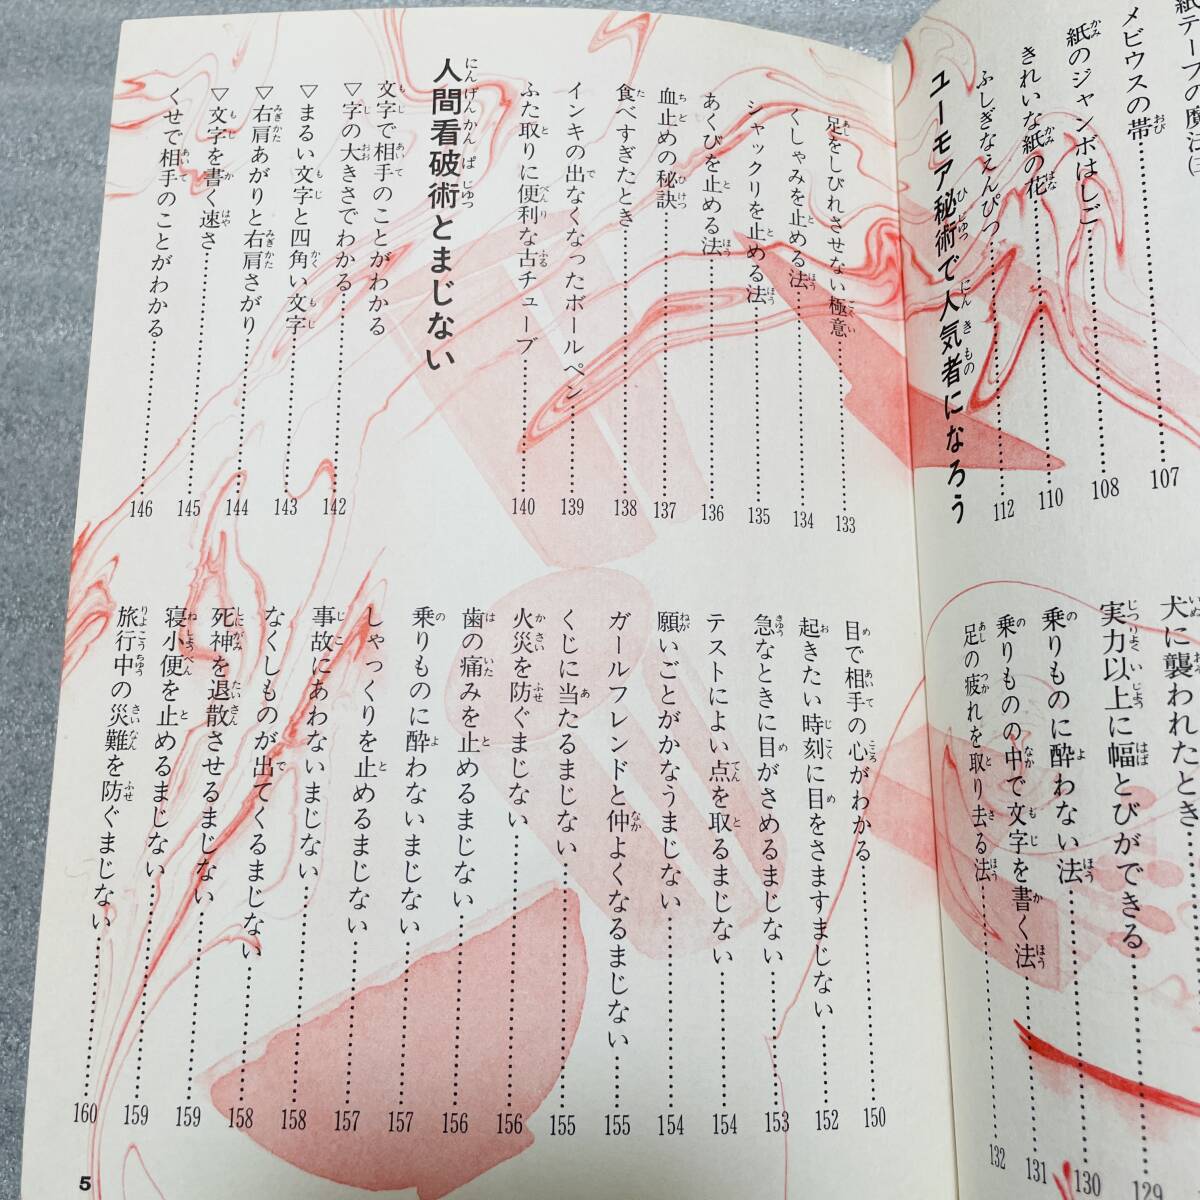 紙テープの魔法
メビウスの帯………107
紙のジャンボはしご………108
きれいな紙の花………110
ふしぎなえんぴつ………112
ユーモア秘術で人気者になろう
犬に襲われたとき………
実力以上に幅とびができる………129
乗りものに酔わない法………130
乗りものの中で文字を書く法………131
足の疲れを取り去る法………132
足をしびれさせない極意………133
くしゃみを止める法………134
シャックリを止める法………135
あくびを止める法………136
血止めの秘訣………137
食べすぎたとき………138
インキの出なくなったボールペン………139
ふた取りに便利な古チューブ………140
人間看破術とまじない
文字で相手のことがわかる
▽字の大きさでわかる………142
▽まるい文字と四角い文字………143
▽右肩あがりと右肩さがり………144
▽文字を書く速さ………145
くせで相手のことがわかる………146
目で相手の心がわかる………150
起きたい時刻に目をさますまじない………152
急なときに目がさめるまじない………153
テストによい点を取るまじない………154
願いごとがかなうまじない………154
ガールフレンドと仲よくなるまじない………155
くじに当たるまじない………155
火災を防ぐまじない………156
歯の痛みを止めるまじない………156
乗りものに酔わないまじない………157
しゃっくりを止めるまじない………157
事故にあわないまじない………158
なくしものが出てくるまじない………158
死神を退散させるまじない………159
寝小便を止めるまじない………159
旅行中の災難を防ぐまじない………160
5